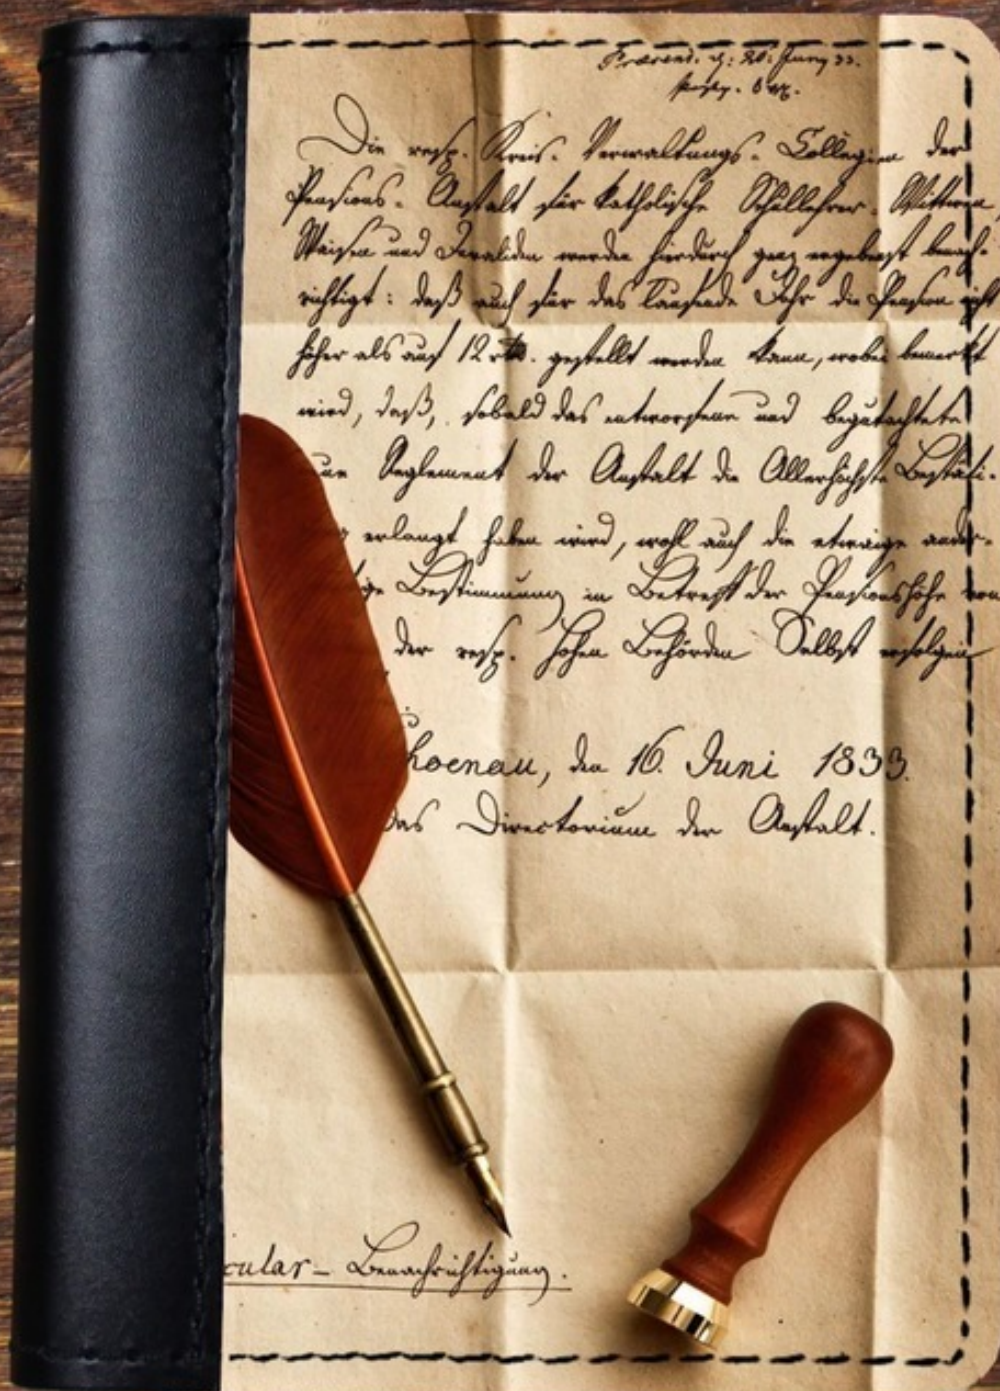 Präsent. d. 20. Juny 33.
Die resp. Kreis-Verwaltungs-Collegien der
Pensions-Anstalt für katholische Schullehrer-Wittwen,
Waisen und Invaliden werden hierdurch ganz ergebenst benach-
richtigt: daß auch für das laufende Jahr die Pension nicht
höher als auf 12 rth. gestellt werden kann, wobei bemerkt
wird, daß, sobald das entworfene und begutachtete
ue Reglement der Anstalt die Allerhöchste Bestäti-
g erlangt haben wird, wohl auch die etwaige ander-
ge Bestimmung in Betreff der Pensionshöhe von
der resp. hohen Behörden Selbst erfolgen
hoenau, den 16. Juni 1833.
Das Directorium der Anstalt.
cular-Benachrichtigung.